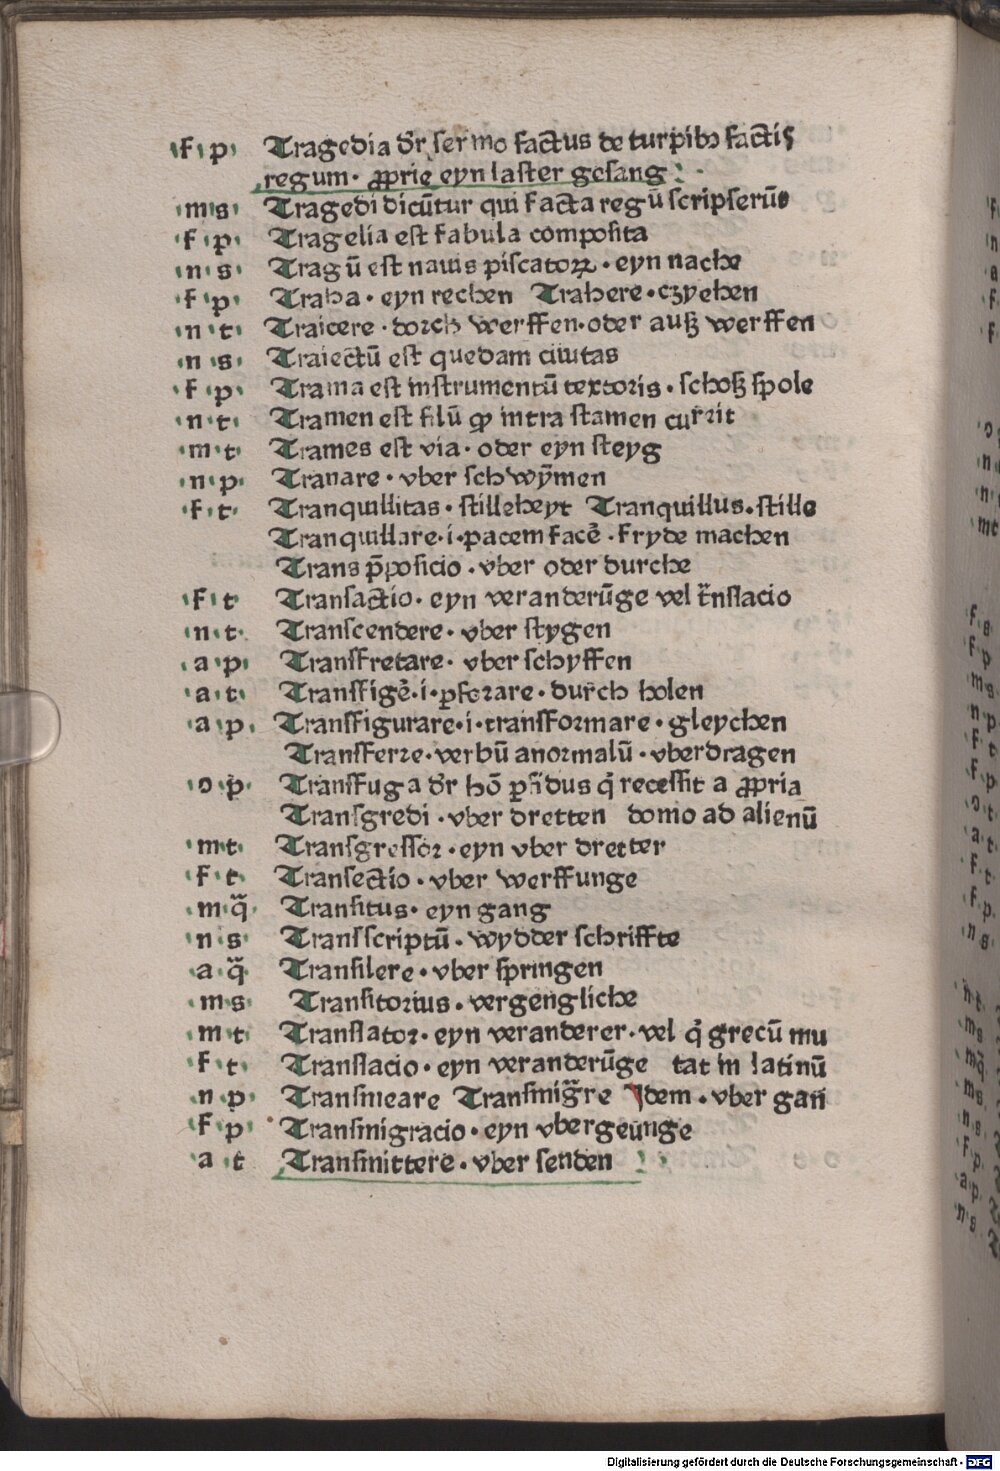 ·f·p· Tragedia dr̄ sermo factus de turpibꝫ factis
regum· ꝓprie eyn laster gesang
·m·s· Tragedi dicūtur qui facta regū scripserūt
·f·p· Tragelia est fabula composita
·n·s· Tragū est nauis piscatoꝝ · eyn nache
·f·p· Traha · eyn rechen Trahere · czyehen
·n·t· Traicere · dorch werffen · oder auß werffen
·n·s· Traiectū est quedam ciuitas
·f·p· Trama est instrumentū textoris · schoß spole
·n·t· Tramen est filū ꝙ intra stamen currit
·m·t· Trames est via · oder eyn steyg
·n·p· Tranare · vber schwȳmen
·f·t· Tranquillitas · stilleheyt Tranquillus · stille
Tranquillare · i · pacem facē · fryde machen
Trans p̄posicio · vber oder durche
·f·t· Transactio · eyn veranderūge vel t̄nslacio
·n·t· Transcendere · vber stygen
·a·p· Transfretare · vber schyffen
·a·t· Transfigē · i · ꝑforare · durch holen
·a·p· Transfigurare · i · transformare · gleychen
Transferre · verbū anormalū · vberdragen
·o·p· Transfuga dr̄ hō ꝑfidus q̇ recessit a ꝓpria
Transgredi · vber dretten domo ad alienū
·m·t· Transgressor · eyn vber dretter
·f·t· Transectio · vber werffunge
·m·q̄· Transitus · eyn gang
·n·s· Transscriptū · wydder schriffte
·a·q̄· Transilere · vber springen
·m·s· Transitorius · vergengliche
·m·t· Translator · eyn veranderer · vel q̇ grecū mu
·f·t· Translacio · eyn veranderūge tat in latinū
·n·p· Transmeare Transmig̃re Idem · vber gan
·f·p· Transmigracio · eyn vbergeunge
·a·t Transmittere · vber senden
Digitalisierung gefördert durch die Deutsche Forschungsgemeinschaft - DFG